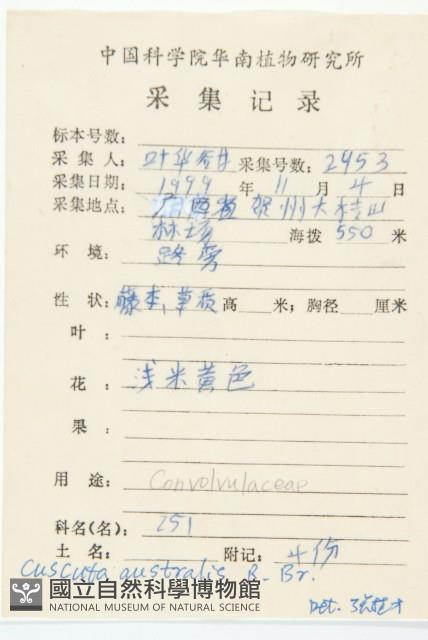 中国科学院华南植物研究所
采集记录
标本号数：
采集人：叶华谷 采集号数：2953
采集日期：1999 年 11 月 4 日
采集地点：广西省贺州大桂山
林场 海拨 550 米
环境：路旁
性状：藤本，草质 高 米；胸径 厘米
叶：
花：浅米黄色
果：
用途：Convolvulaceae
科名(名)：251
土名： 附记：4份
Cuscuta australis R. Br.
國立自然科學博物館
NATIONAL MUSEUM OF NATURAL SCIENCE
Det.